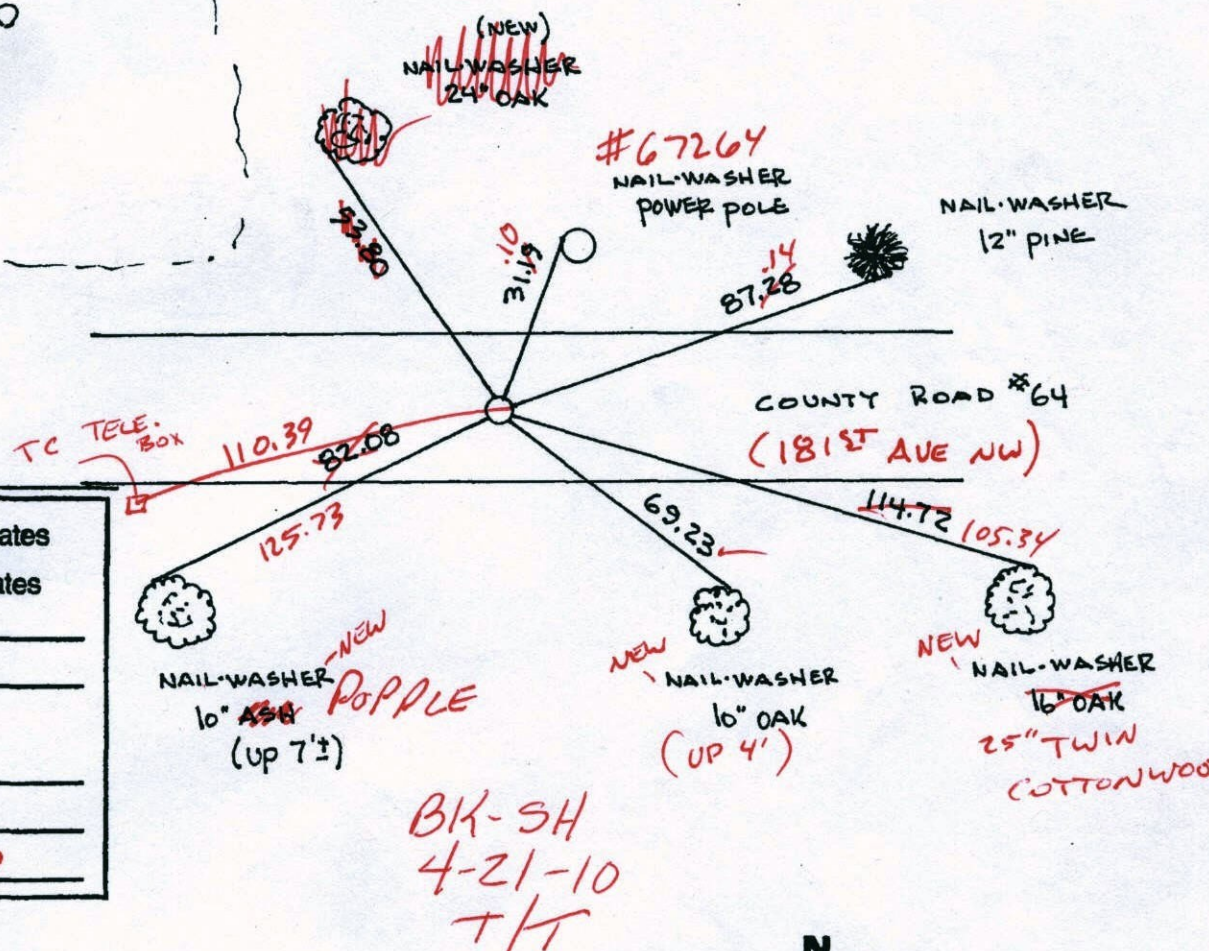 (NEW)
NAIL·WASHER
24" OAK
53.80
#67264
NAIL·WASHER
POWER POLE
.10
31.19
NAIL·WASHER
12" PINE
.14
87.28
COUNTY ROAD #64
(181ST AVE NW)
TC TELE.
BOX
110.39
82.08
125.73
69.23
114.72 105.34
ates
ates
NEW
NAIL·WASHER
10" ASH POPPLE
(UP 7'±)
NEW
NAIL·WASHER
10" OAK
(UP 4')
NEW
NAIL·WASHER
16" OAK
25" TWIN
COTTONWOO
BK-SH
4-21-10
T/T
N